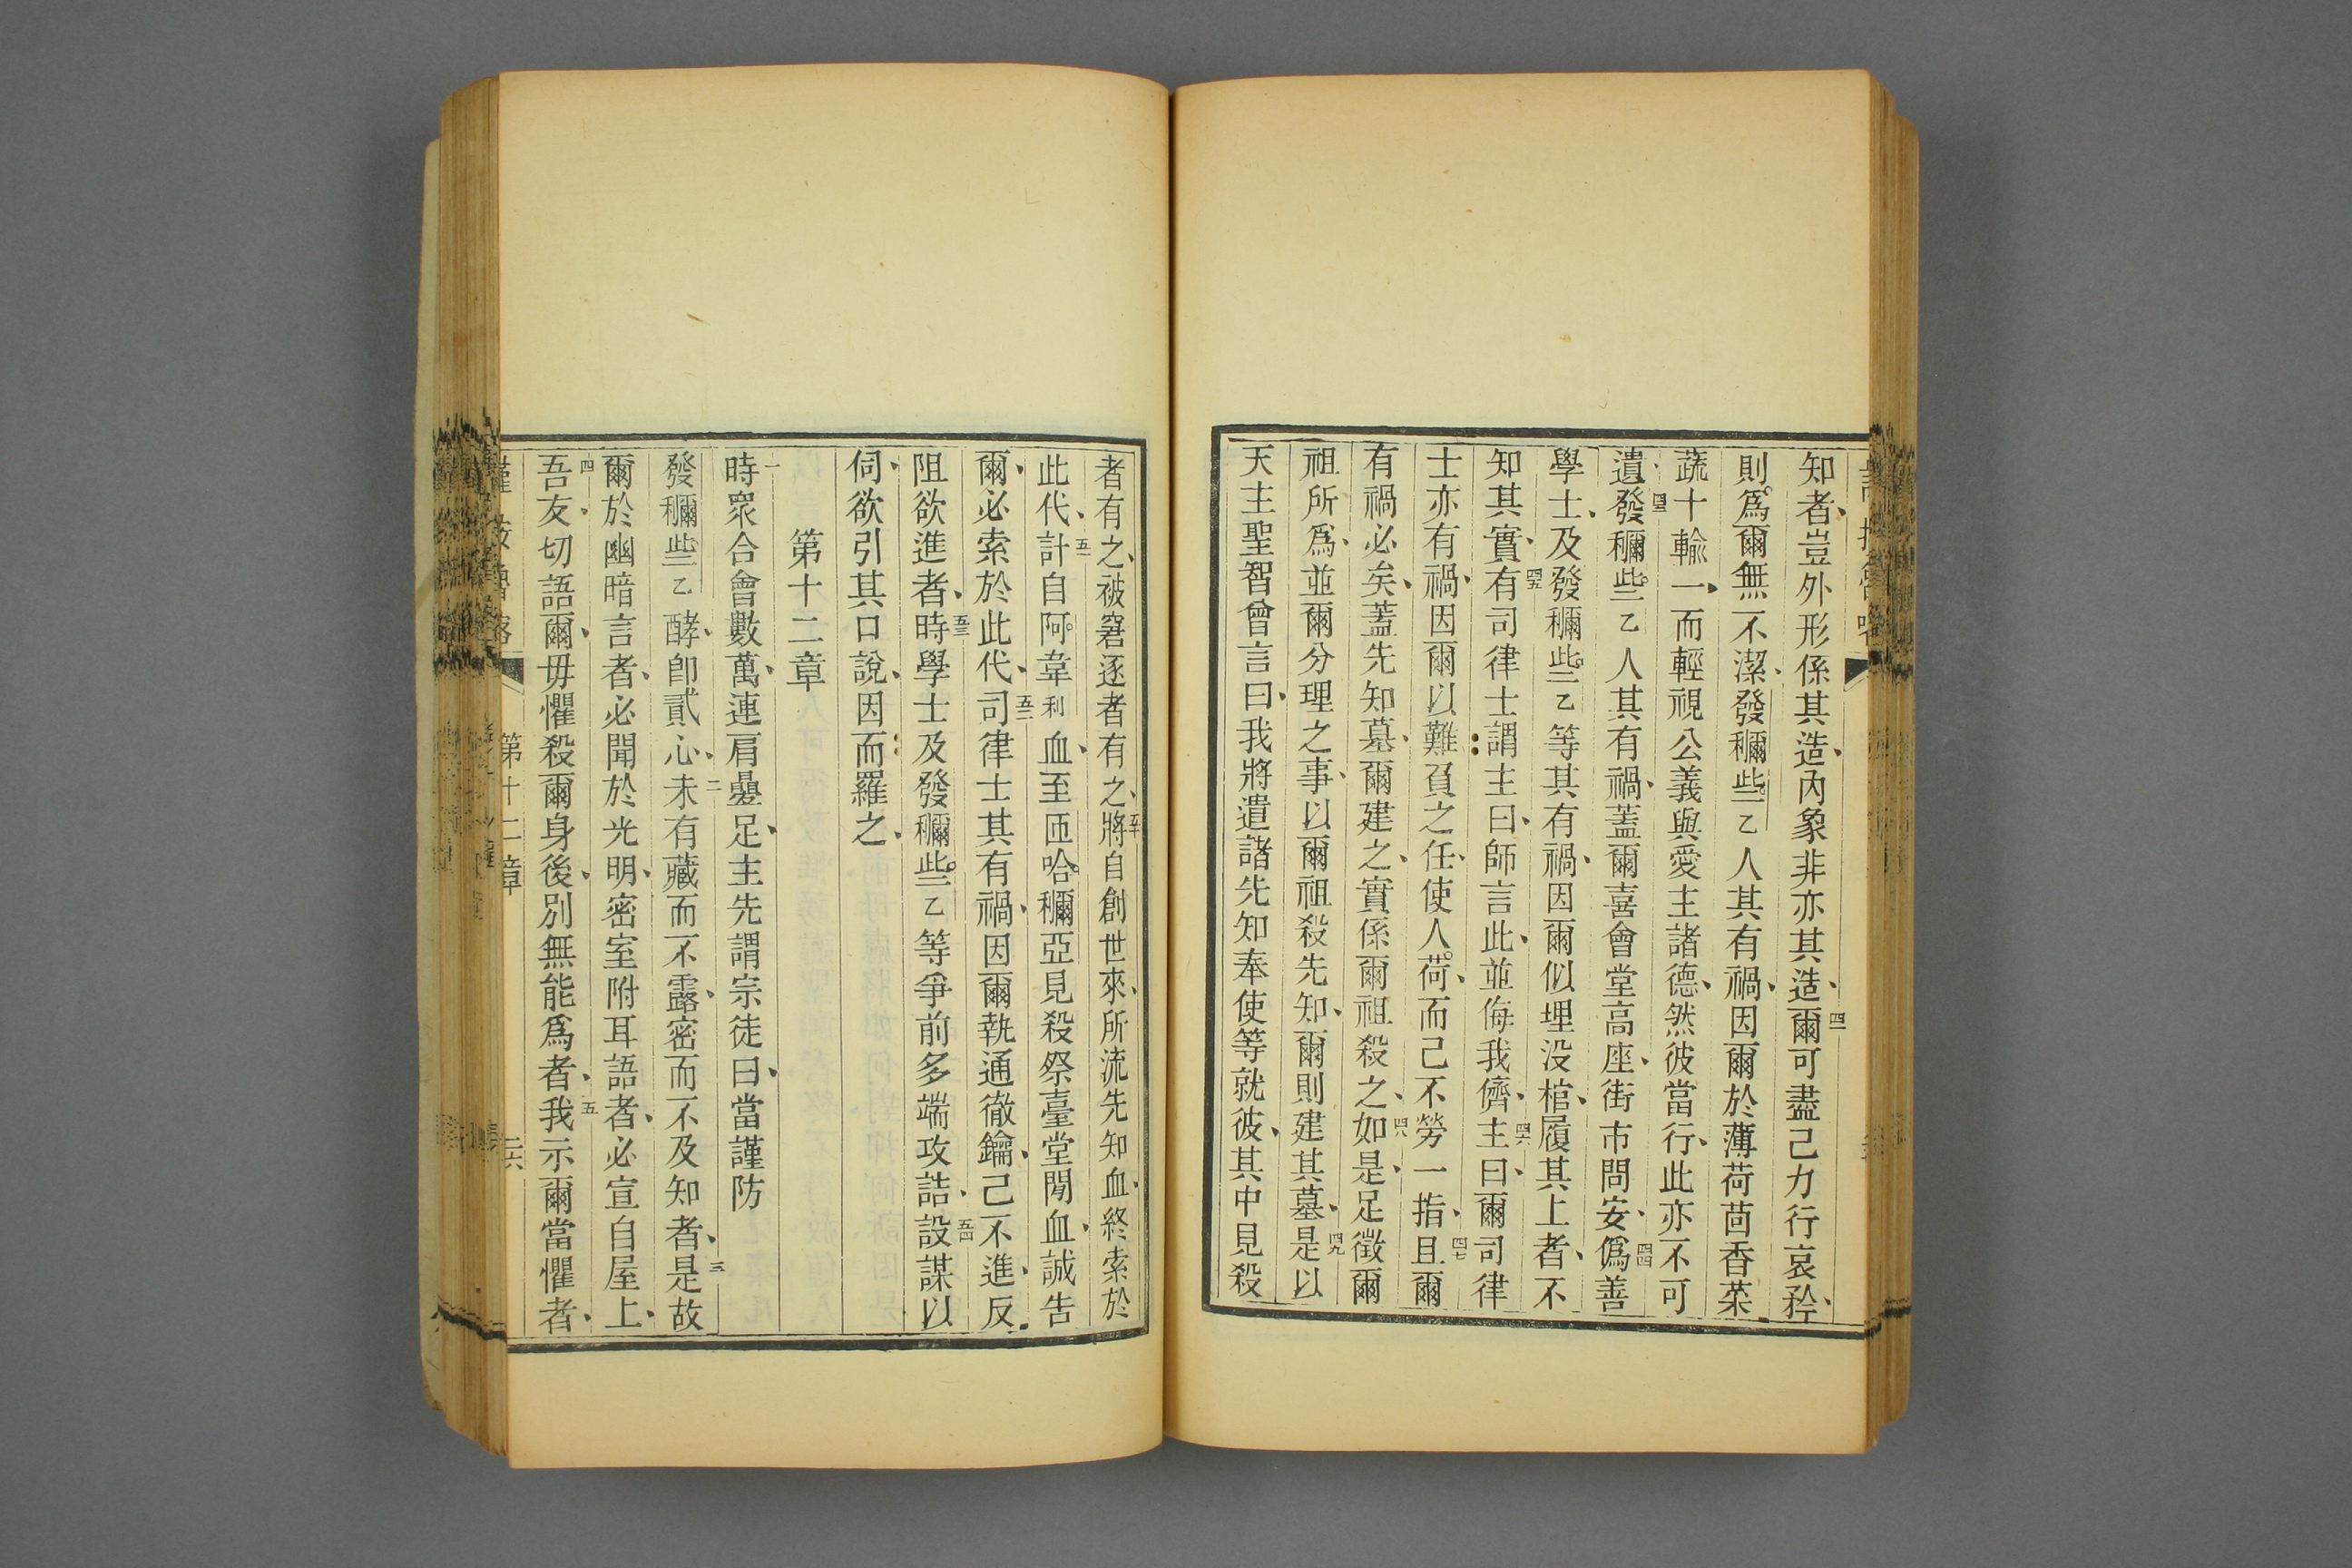 知者、豈外形係其造、內象非亦其造、四一爾可盡己力行哀矜、
則爲爾無不潔、發穪些乙人其有禍、因爾於薄荷茴香菜
蔬十輸一、而輕視公義與愛主諸德、然彼當行、此亦不可
遺、四三發穪些乙人其有禍、蓋爾喜會堂高座、街市問安、四四僞善
學士、及發穪些乙等其有禍、因爾似埋没棺、履其上者、不
知其實、四五有司律士謂主曰、師言此、並侮我儕、四六主曰、爾司律
士亦有禍、因爾以難負之任、使人荷、而己不勞一指、四七且爾
有禍必矣、蓋先知墓、爾建之、實係爾祖殺之、四八如是、足徵爾
祖所爲、並爾分理之事、以爾祖殺先知、爾則建其墓、四九是以
天主聖智曾言曰、我將遣諸先知奉使等就彼、其中見殺
者有之、被窘逐者有之、五十將自創世來、所流先知血、終索於
此代、五一計自阿韋利血、至匝哈穪亞見殺祭臺堂閒血、誠告
爾、必索於此代、五二司律士其有禍、因爾執通徹鑰、己不進、反
阻欲進者、五三時學士及發穪些乙等爭前多端攻詰、五四設謀以
伺、欲引其口說、因而羅之、
第十二章
一時眾合會數萬、連肩疊足、主先謂宗徒曰、當謹防
發穪些乙酵、卽貳心、二未有藏而不露、密而不及知者、三是故
爾於幽暗言者、必聞於光明、密室附耳語者、必宣自屋上、
四吾友、切語爾、毋懼殺爾身後、別無能爲者、五我示爾當懼者、
第十二章